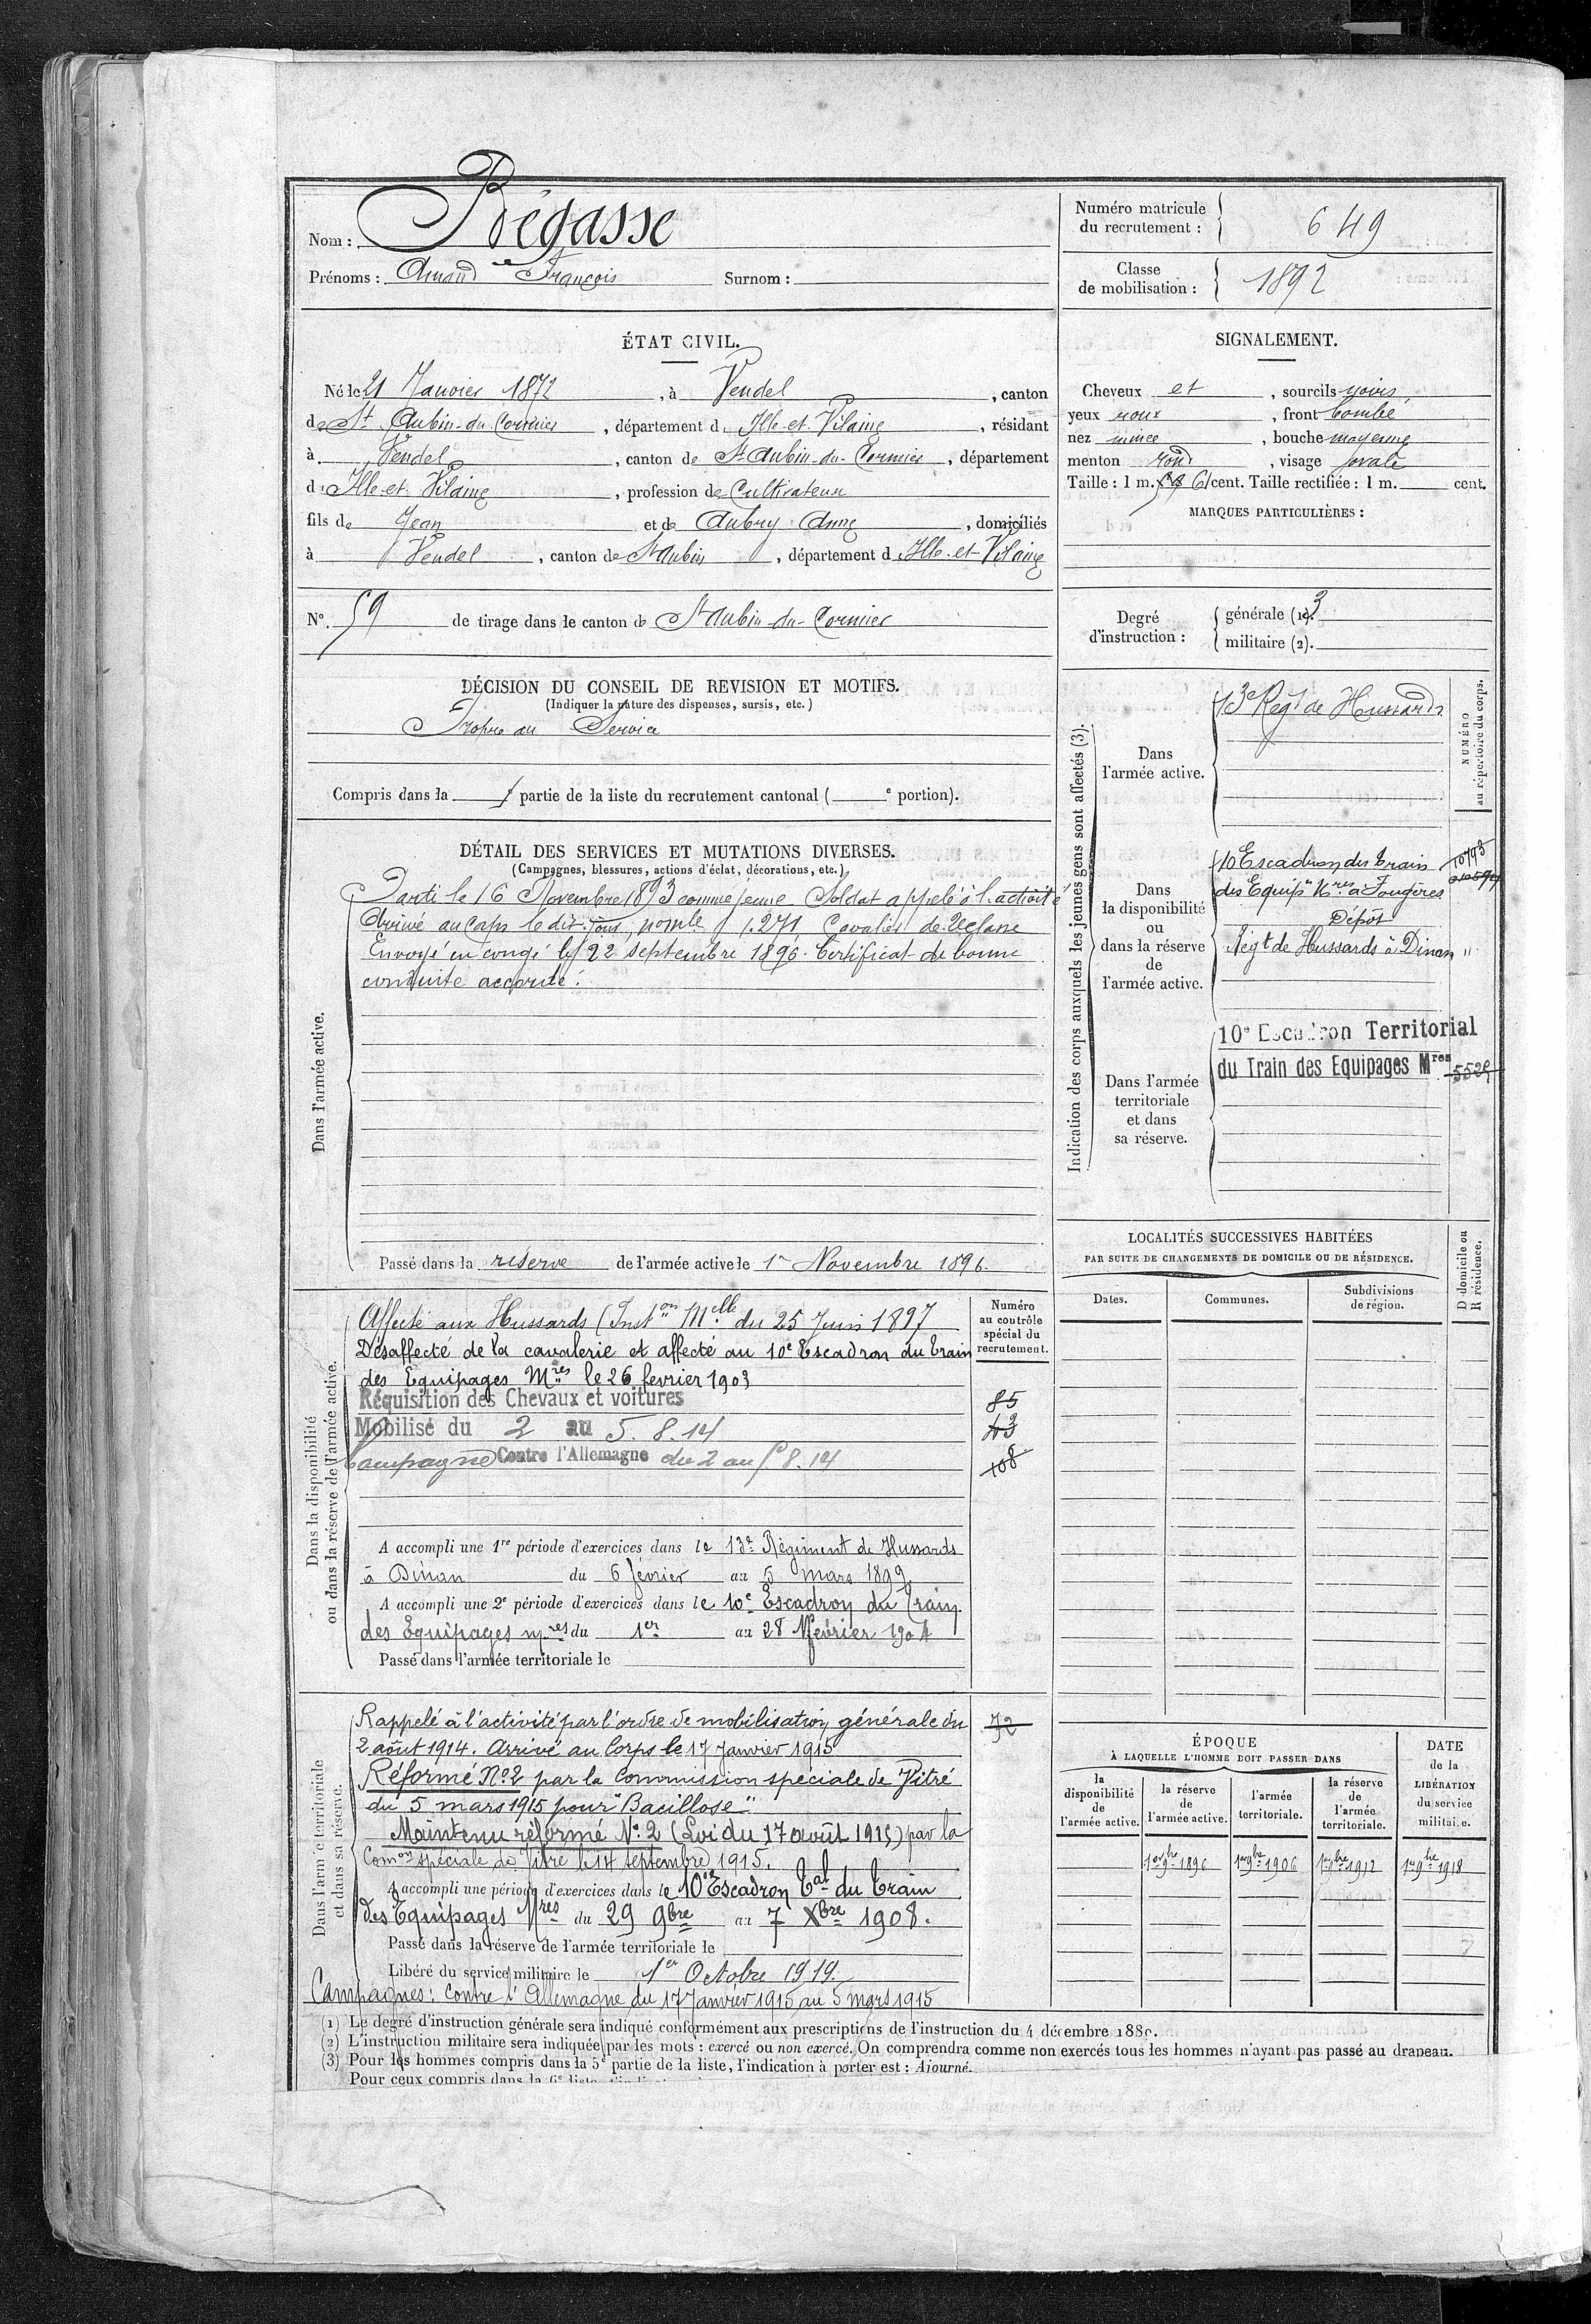 Nom : Bégasse
Prénoms : Amand François Surnom :
Numéro matricule du recrutement : 649
Classe de mobilisation : 1892
ÉTAT CIVIL.
Né le 21 Janvier 1872, à Vendel, canton
de St Aubin-du-Cormier, département d'Ille-et-Vilaine, résidant
à Vendel, canton de St Aubin-du-Cormier, département
d'Ille-et-Vilaine, profession de Cultivateur
fils de Jean et de Aubry Anne, domiciliés
à Vendel, canton de St Aubin, département d'Ille-et-Vilaine
N°. 59 de tirage dans le canton de St Aubin-du-Cormier
SIGNALEMENT.
Cheveux et, sourcils noirs,
yeux roux, front bombé
nez mince, bouche moyenne
menton rond, visage ovale
Taille : 1 m. 61 cent. Taille rectifiée : 1 m. cent.
MARQUES PARTICULIÈRES :
Degré d'instruction : générale (1). 3
militaire (2).
DÉCISION DU CONSEIL DE REVISION ET MOTIFS.
(Indiquer la nature des dispenses, sursis, etc.)
Propre au Service
Compris dans la 1e partie de la liste du recrutement cantonal ( e portion).
DÉTAIL DES SERVICES ET MUTATIONS DIVERSES.
(Campagnes, blessures, actions d'éclat, décorations, etc.)
Dans l'armée active.
Parti le 16 Novembre 1893 comme jeune Soldat appelé à l'activité
Arrivé au Corps le dit jour, no mle 1.271, Cavalier de 2e classe
Envoyé en congé le 22 septembre 1896. Certificat de bonne
conduite accordé.
Passé dans la réserve de l'armée active le 1er Novembre 1896.
Indication des corps auxquels les jeunes gens sont affectés (3).
NUMÉRO au répertoire du corps.
Dans l'armée active.
13e Régt de Hussards
Dans la disponibilité ou dans la réserve de l'armée active.
10 Escadron du train
des Equip. Mres à Fougères
Dépôt
Régt de Hussards à Dinan "
Dans l'armée territoriale et dans sa réserve.
10e Escadron Territorial
du Train des Equipages Mres
LOCALITÉS SUCCESSIVES HABITÉES
PAR SUITE DE CHANGEMENTS DE DOMICILE OU DE RÉSIDENCE.
D domicile ou R résidence.
Dates. Communes. Subdivisions de région.
Dans la disponibilité ou dans la réserve de l'armée active.
Numéro au contrôle spécial du recrutement.
Affecté aux Hussards (Inston Melle du 25 Juin 1897
Désaffecté de la cavalerie et affecté au 10e Escadron du train
des Equipages Mres le 26 février 1903
Réquisition des Chevaux et voitures
Mobilisé du 2 au 5.8.14
Campagne Contre l'Allemagne du 2 au 5 8.14
85
43
108
A accompli une 1re période d'exercices dans le 13e Régiment de Hussards
à Dinan du 6 février au 5 mars 1899
A accompli une 2e période d'exercices dans le 10e Escadron du Train
des Equipages mres du 1er au 28 février 1904
Passé dans l'armée territoriale le
Dans l'armée territoriale et dans sa réserve.
Rappelé à l'activité par l'ordre de mobilisation générale du 72
2 août 1914. Arrivé au Corps le 17 Janvier 1915
Réformé No2 par la Commission spéciale de Vitré
du 5 mars 1915 pour "Bacillose"
Maintenu réformé No.2 (Loi du 17 août 1915) par la
Comon spéciale de Vitré le 14 septembre 1915.
A accompli une période d'exercices dans le 10e Escadron tal du train
des Equipages Mres du 29 9bre au 7 Xbre 1908.
Passé dans la réserve de l'armée territoriale le
Libéré du service militaire le 1er Octobre 1919.
Campagnes : Contre l'Allemagne du 17 Janvier 1915 au 5 mars 1915
ÉPOQUE
À LAQUELLE L'HOMME DOIT PASSER DANS
DATE de la LIBÉRATION du service militaire.
la disponibilité de l'armée active. la réserve de l'armée active. l'armée territoriale. la réserve de l'armée territoriale.
1er 9bre 1896 1er 9bre 1906 1er 9bre 1912 1er 9bre 1918
(1) Le degré d'instruction générale sera indiqué conformément aux prescriptions de l'instruction du 4 décembre 1889.
(2) L'instruction militaire sera indiquée par les mots : exercé ou non exercé. On comprendra comme non exercés tous les hommes n'ayant pas passé au drapeau.
(3) Pour les hommes compris dans la 5e partie de la liste, l'indication à porter est : Ajourné.
Pour ceux compris dans la 6e liste